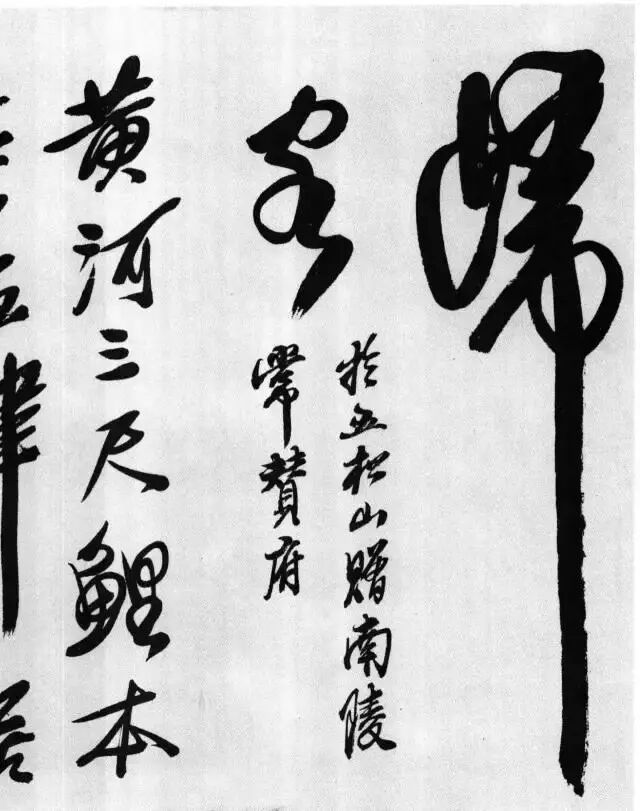 歸
客
於五松山贈南陵
常贊府
黄河三尺鯉本
津居